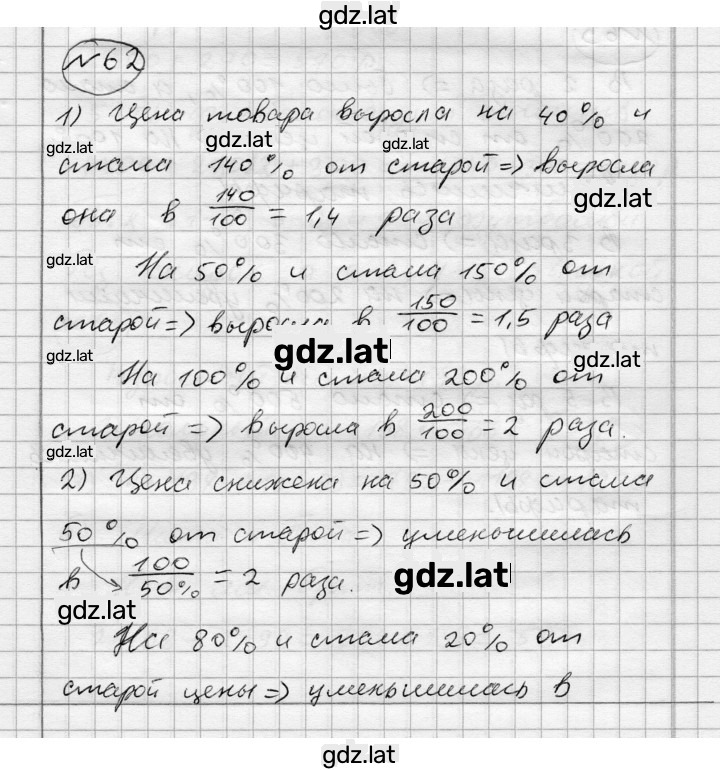 gdz.lat
№62
1) Цена товара выросла на 40% и
gdz.lat gdz.lat gdz.lat
стала 140% от старой => выросла
gdz.lat
она в 140/100 = 1,4 раза
gdz.lat
На 50% и стала 150% от
gdz.lat
старой => выросла в 150/100 = 1,5 раза
gdz.lat gdz.lat
На 100% и стала 200% от
старой => выросла в 200/100 = 2 раза.
gdz.lat gdz.lat
2) Цена снижена на 50% и стала
50% от старой => уменьшилась
в 100/50% = 2 раза.
gdz.lat
gdz.lat
На 80% и стала 20% от
старой цены => уменьшилась в
gdz.lat